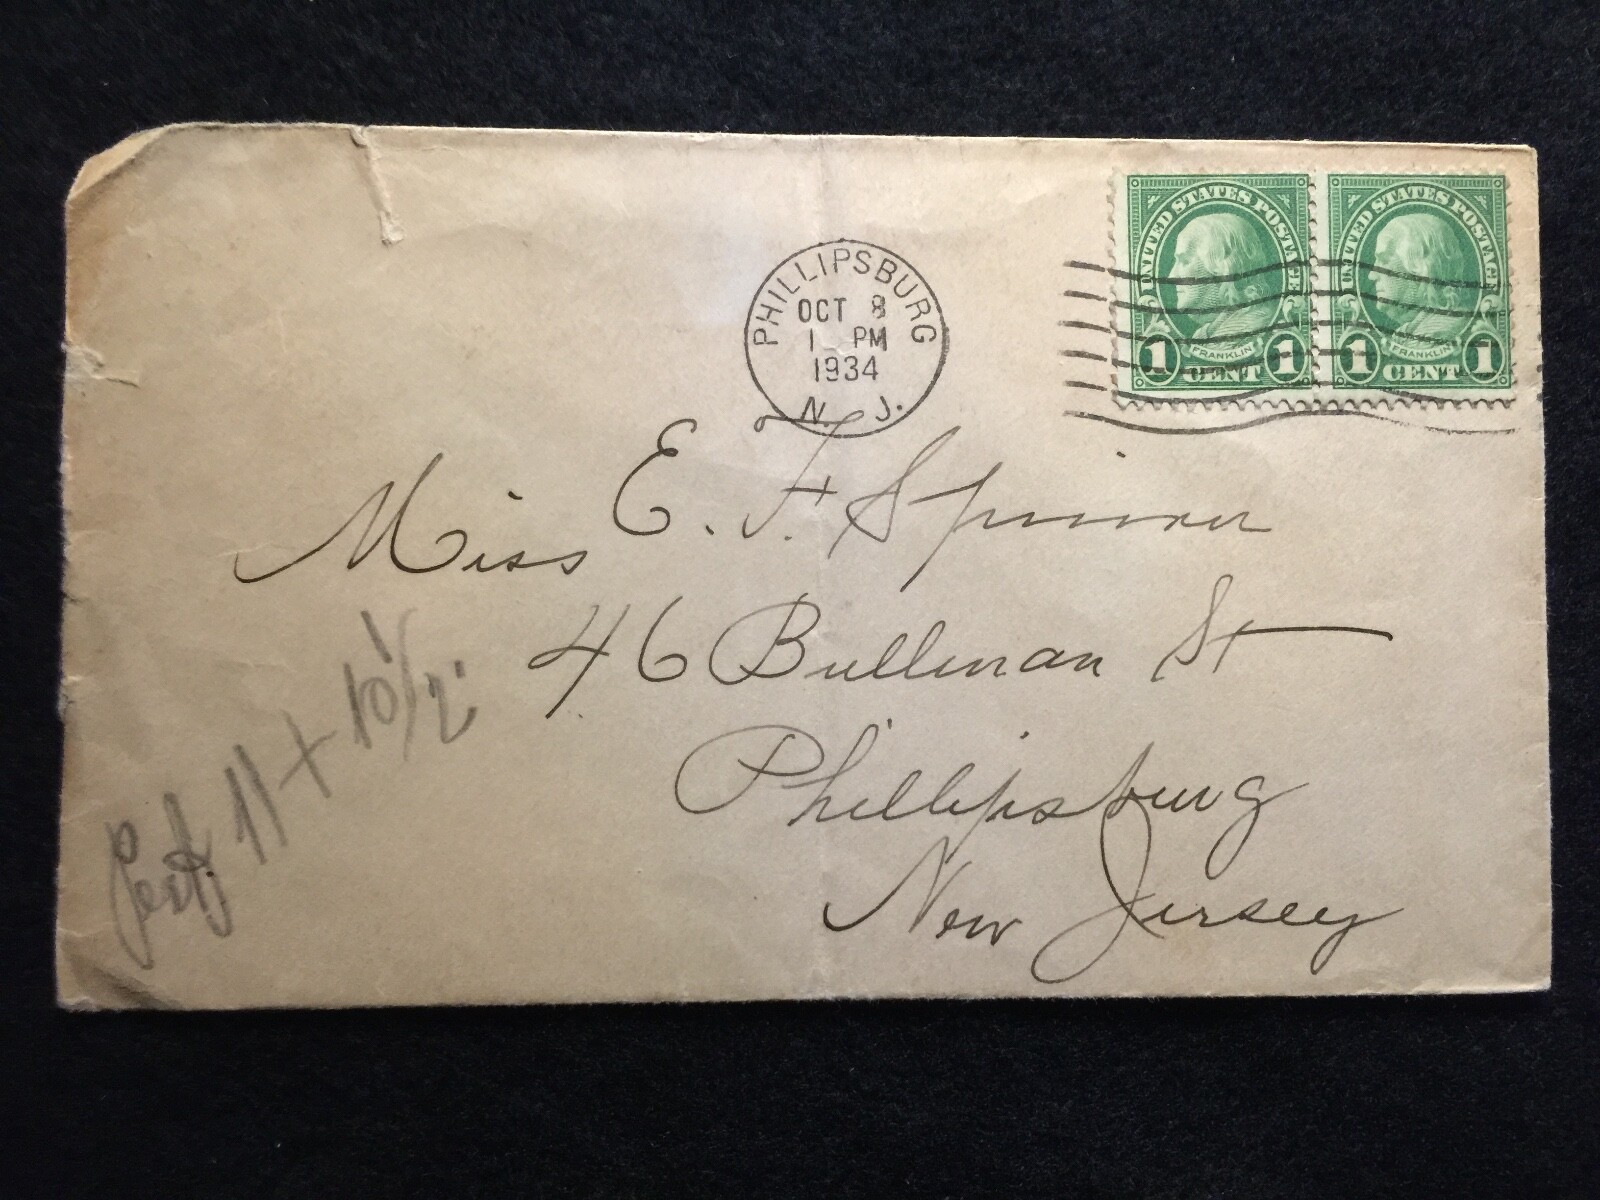 PHILLIPSBURG
OCT 8
1 PM
1934
N. J.
UNITED STATES POSTAGE
FRANKLIN
1 CENT 1
UNITED STATES POSTAGE
FRANKLIN
1 CENT 1
Miss E. F. Spinner
46 Bullman St
Phillipsburg
New Jersey
Perf. 11 x 10 1/2.